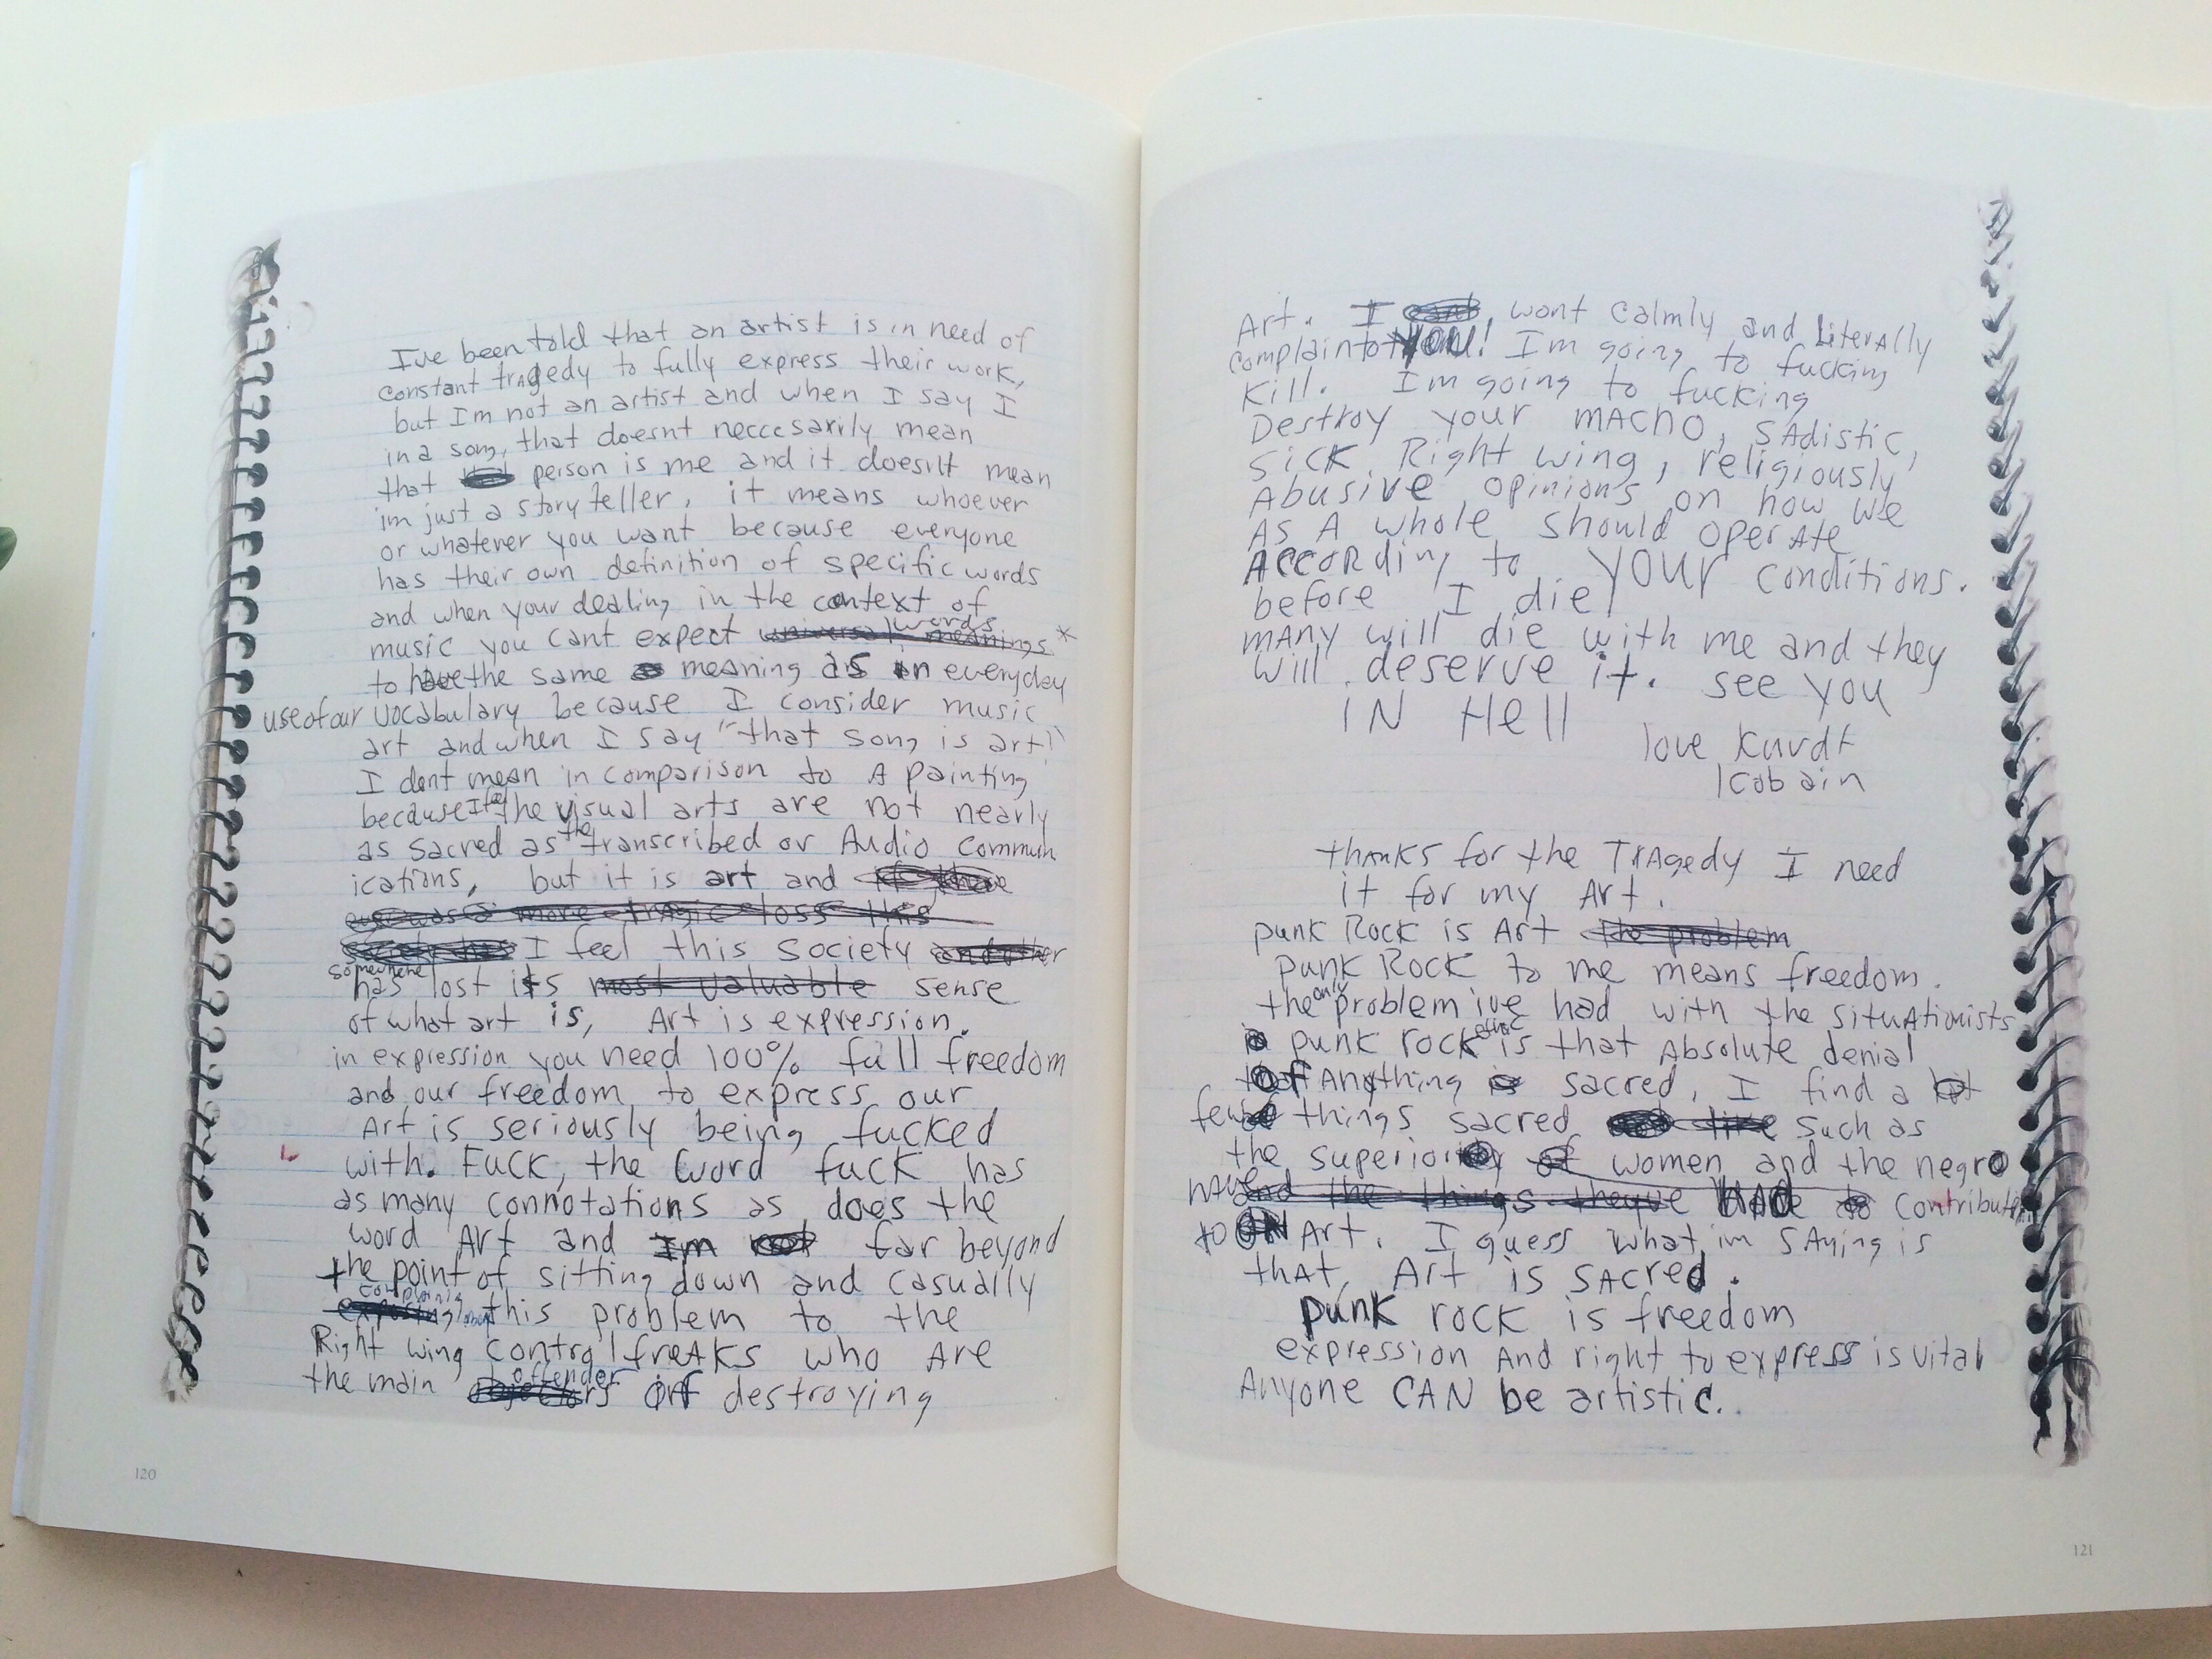 I've been told that an artist is in need of
constant trAgedy to fully express their work,
but Im not an artist and when I say I
in a song, that doesnt neccesarily mean
that person is me and it doesnt mean
im just a story teller, it means whoever
or whatever you want because everyone
has their own definition of specific words
and when your dealing in the context of
music you cant expect words *
universal meanings
to have the same meaning as in everyday
use of our vocabulary because I consider music
art and when I say "that song is art!"
I dont mean in comparison to A painting
because I feel the visual arts are not nearly
as sacred as the transcribed or Audio Commun
ications, but it is art and
more tragic loss this
I feel this society
somewhere
has lost its most valuable sense
of what art is, Art is expression.
in expression you need 100% full freedom
and our freedom to express our
Art is seriously being fucked
with. Fuck, the word fuck has
as many connotations as does the
word Art and Im far beyond
the point of sitting down and casually
complaining about this problem to the
Right wing control freAKS who Are
the main offender of destroying
120
Art. I wont calmly and LiterAlly
complain to YOU! Im going to fucking
Kill. Im going to fucking
Destroy your MACHO, SAdistic,
SicK Right wing, religiously
Abusive opinions on how we
AS A whole should operAte
AccoRding to YOUR conditions.
before I die
mAny will die with me and they
will deserve it. see you
IN Hell
love Kurdt
Cobain
thAnKS for the TRAgedy I need
it for my Art.
punk Rock is Art the problem
punk Rock to me means freedom.
the only problem ive had with the situAtionists
punk rock ethic is that Absolute denial
of Anything sacred, I find a
few things sacred like such as
the superiority of women and the negro
have and the things theyve contributed
to Art. I guess what im SAying is
thAt, Art is SACred.
punk rock is freedom
expression And right to express is vital
Anyone CAN be artistic.
121